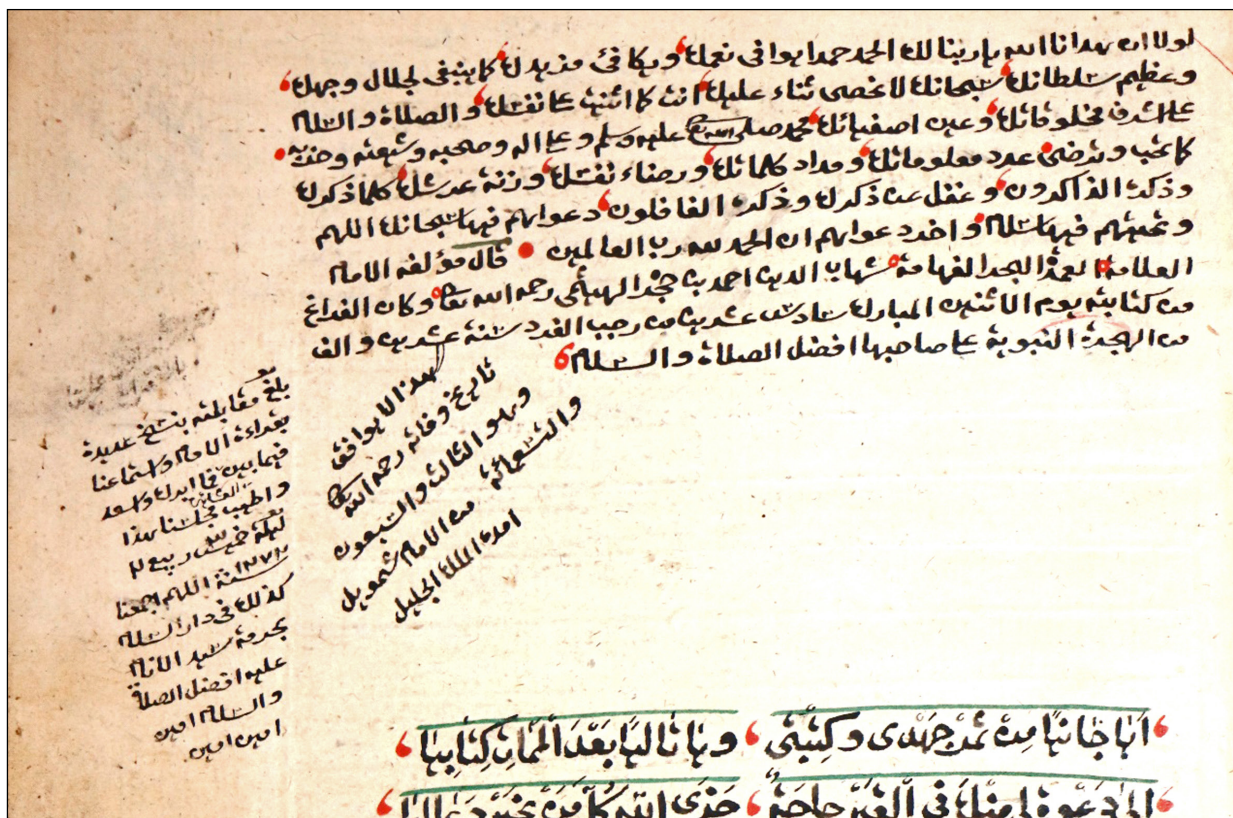 لولا ان هدانا الله يا ربنا لك الحمد حمدا يوافي نعمك ويكافئ مزيدك كما ينبغي لجلال وجهك
وعظيم سلطانك سبحانك لا نحصى ثناء عليك انت كما اثنيت على نفسك والصلاة والسلام
على اشرف مخلوقاتك وعين اصفيائك محمد صلى الله عليه وسلم وعلى اله وصحبه وشيعته وحزبه
كما تحب وترضى عدد معلوماتك ومداد كلماتك ورضاء نفسك وزنة عرشك كلما ذكرك
وذكره الذاكرون وغفل عن ذكرك وذكره الغافلون دعواهم فيها سبحانك اللهم
وتحيتهم فيها سلام واخر دعواهم ان الحمد لله رب العالمين قال مؤلفه الامام
العلامة العمدة البحر الفهامة شهاب الدين احمد بن حجر الهيتمى رحمه الله تعالى وكان الفراغ
من كتابته يوم الاثنين المبارك سادس عشرين من رجب الفرد سنة عشرين والف
من الهجرة النبوية على صاحبها افضل الصلاة والسلام
هذا لا يوافق
تاريخ وفاته رحمه الله
وهو الثالث والسبعون
والتسعمائة
من الامام شمويل
امده الملك الجليل
بلغ مقابلته بنسخ عديدة
بقراءة الامام واستماعنا
فيما بين
واطيب مجلسنا هذا
ليلة خميس ربيع ٢
سنة ١٢٧٣ اللهم اجمعنا
كذلك في دار السلام
بحرمة سيد الانام
عليه افضل الصلاة
والسلام امين
امين امين
ايا جانيا من ثمر جهدى وكتبتى وها تاليا بعد الممات كتابيا
لى فى